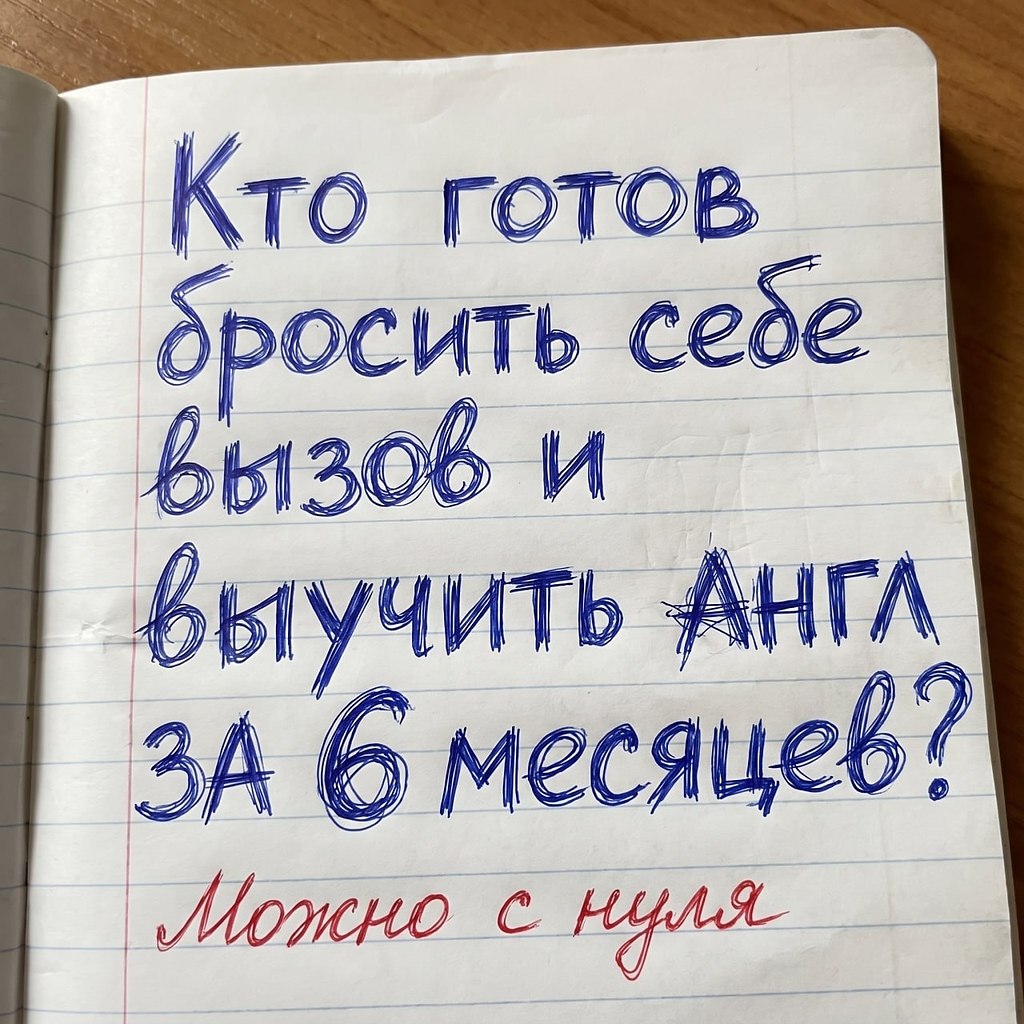 Кто готов
бросить себе
вызов и
выучить Англ
за 6 месяцев?
Можно с нуля